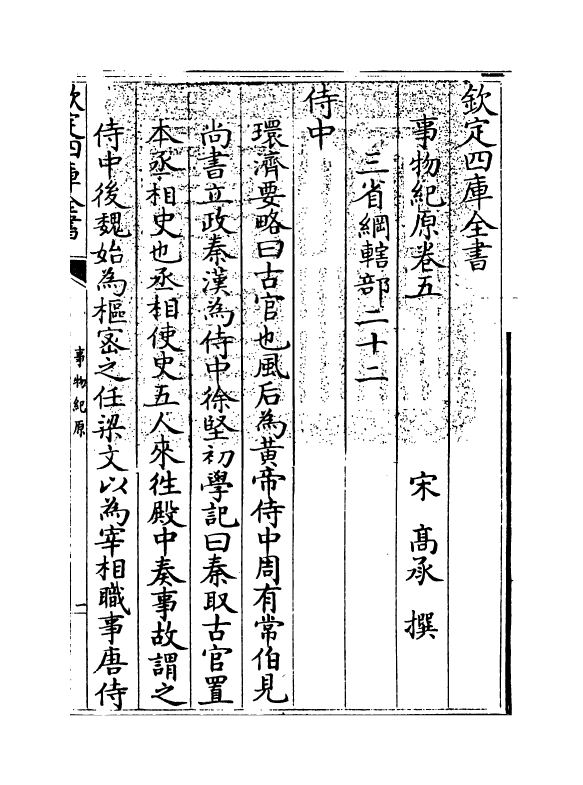 欽定四庫全書
事物紀原卷五
宋 髙承 撰
三省綱轄部二十二
侍中
環濟要略曰古官也風后為黄帝侍中周有常伯見
尚書立政秦漢為侍中徐堅初學記曰秦取古官置
本丞相史也丞相使史五人來徃殿中奏事故謂之
侍中後魏始為樞宻之任梁文以為宰相職事唐侍
欽定四庫全書
事物紀原
一